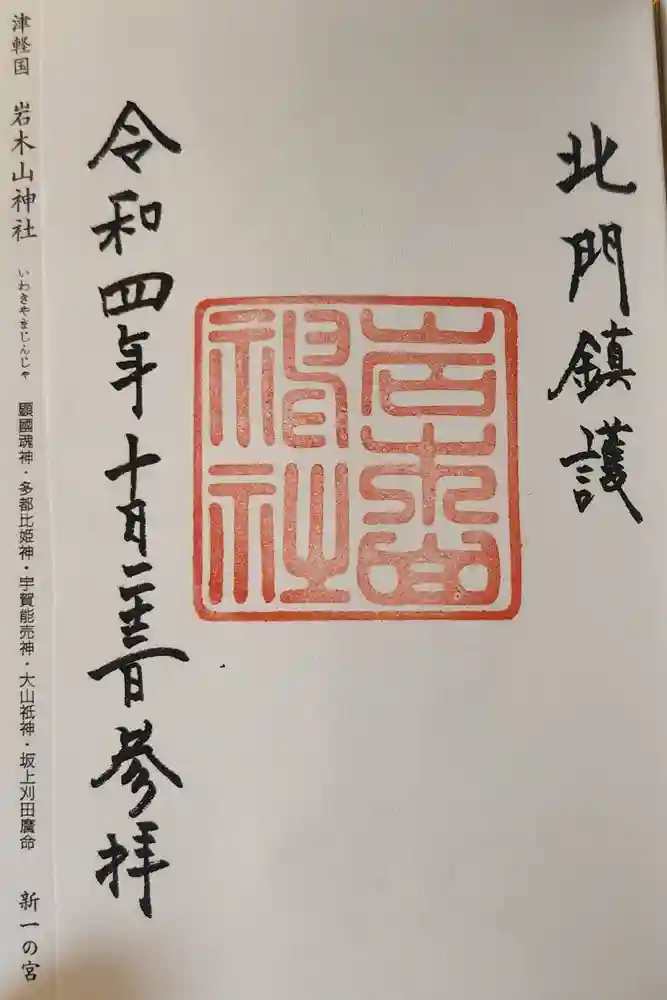 北門鎮護
岩木山
神社
令和四年十月二十三日参拝
津軽国 岩木山神社 いわきやまじんじゃ 顕國魂神・多都比姫神・宇賀能売神・大山祇神・坂上刈田麿命 新一の宮